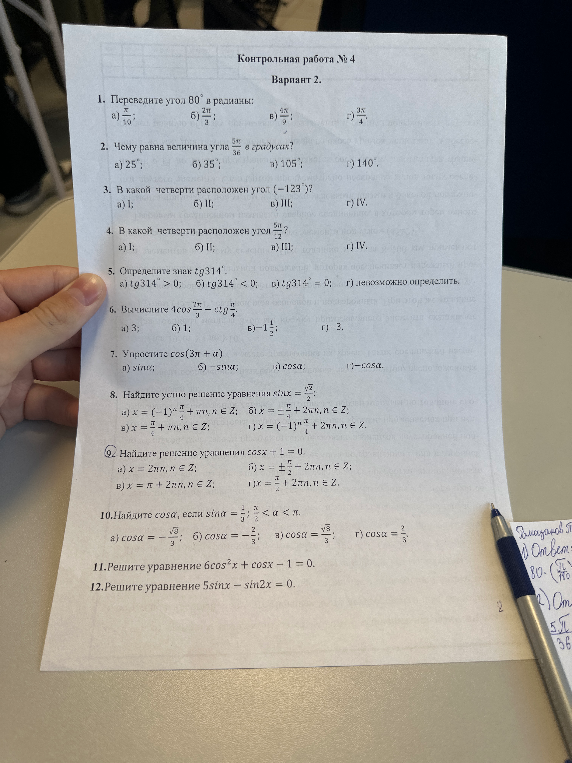 Контрольная работа № 4
Вариант 2.
1. Переведите угол 80° в радианы:
а) π/10; б) 2π/3; в) 4π/9; г) 3π/4.
2. Чему равна величина угла 5π/36 в градусах?
а) 25°; б) 35°; в) 105°; г) 140°.
3. В какой четверти расположен угол (−123°)?
а) I; б) II; в) III; г) IV.
4. В какой четверти расположен угол 5π/12?
а) I; б) II; в) III; г) IV.
5. Определите знак tg314°.
а) tg314° > 0; б) tg314° < 0; в) tg314° = 0; г) невозможно определить.
6. Вычислите 4cos 2π/3 − ctg π/4.
а) 3; б) 1; в) −1 1/2; г) -3.
7. Упростите cos(3π + α)
а) sinα; б) −sinα; в) cosα; г) −cosα.
8. Найдите решение уравнения sinx = √2/2;
а) x = (−1)ⁿ π/4 + πn, n ∈ Z; б) x = π/4 + 2πn, n ∈ Z;
в) x = π/4 + πn, n ∈ Z; г) x = (−1)ⁿ π/4 + 2πn, n ∈ Z.
9. Найдите решение уравнения cosx − 1 = 0.
а) x = 2πn, n ∈ Z; б) x = ± π/2 + 2πn, n ∈ Z;
в) x = π + 2πn, n ∈ Z; г) x = π/2 + 2πn, n ∈ Z.
10. Найдите cosα, если sinα = 1/3; π/2 < α < π.
а) cosα = −√8/3; б) cosα = −2/3; в) cosα = √8/3; г) cosα = 2/3.
11. Решите уравнение 6cos²x + cosx − 1 = 0.
12. Решите уравнение 5sinx − sin2x = 0.
1) Ответ
80·(π/180
2
2) От
5π/36